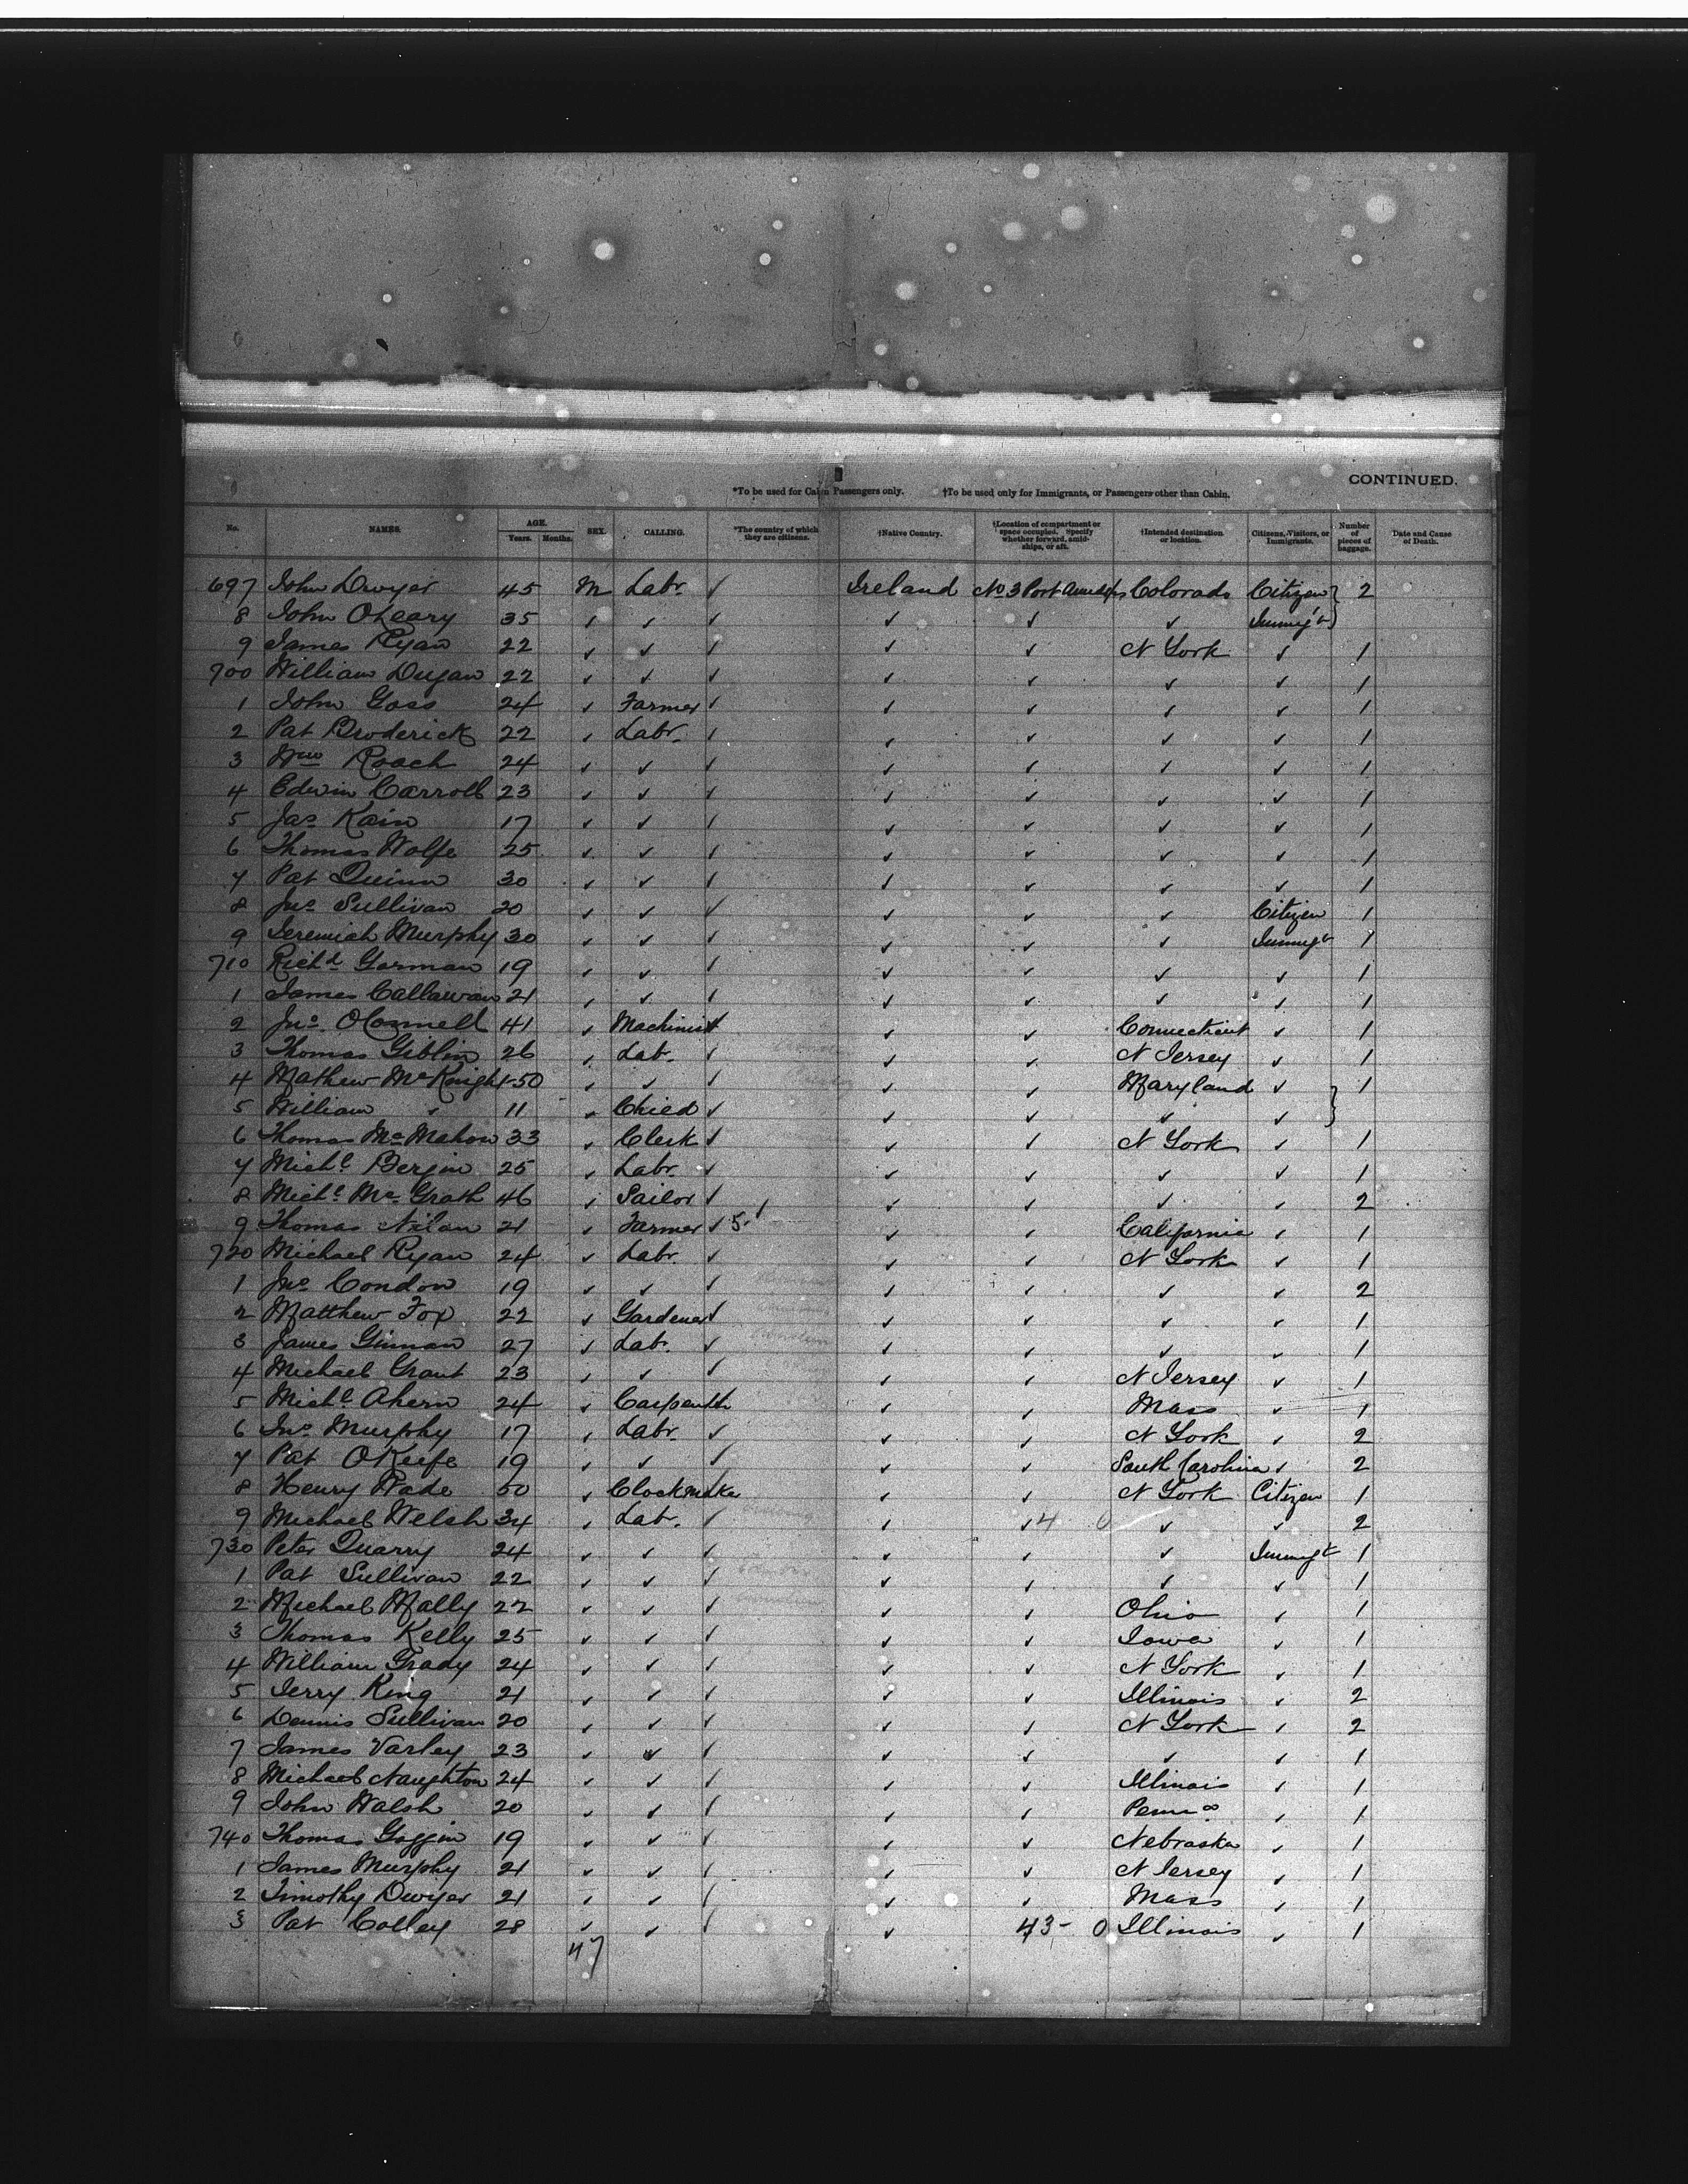 CONTINUED.
*To be used for Cabin Passengers only. †To be used only for Immigrants, or Passengers other than Cabin.
No. NAMES. AGE. Years. Months. SEX. CALLING. *The country of which they are citizens. †Native Country. †Location of compartment or space occupied. Specify whether forward, amidships, or aft. †Intended destination or location. Citizens, Visitors, or Immigrants. Number of pieces of baggage. Date and Cause of Death.
697 John Dwyer 45 M Labr ✓ Ireland No 3 Port Colorado Citizen 2
8 John OLeary 35 ✓ ✓ ✓ ✓ ✓ ✓ Immigt
9 James Ryan 22 ✓ ✓ ✓ ✓ ✓ N York ✓ 1
700 William Dugan 22 ✓ ✓ ✓ ✓ ✓ ✓ ✓ 1
1 John Goss 24 ✓ Farmer ✓ ✓ ✓ ✓ ✓ 1
2 Pat Broderick 22 ✓ Labr. ✓ ✓ ✓ ✓ ✓ 1
3 Wm Roach 24 ✓ ✓ ✓ ✓ ✓ ✓ ✓ 1
4 Edwin Carroll 23 ✓ ✓ ✓ ✓ ✓ ✓ ✓ 1
5 Jas Kain 17 ✓ ✓ ✓ ✓ ✓ ✓ ✓ 1
6 Thomas Wolfe 25 ✓ ✓ ✓ ✓ ✓ ✓ ✓ 1
7 Pat Quinn 30 ✓ ✓ ✓ ✓ ✓ ✓ ✓ 1
8 Jno Sullivan 20 ✓ ✓ ✓ ✓ ✓ ✓ Citizen 1
9 Jeremiah Murphy 30 ✓ ✓ ✓ ✓ ✓ ✓ Immigt 1
710 Richd Gorman 19 ✓ ✓ ✓ ✓ ✓ ✓ ✓ 1
1 James Callawan 21 ✓ ✓ ✓ ✓ ✓ ✓ ✓ 1
2 Jno. OConnell 41 ✓ Machinist ✓ ✓ ✓ Connecticut ✓ 1
3 Thomas Giblin 26 ✓ Lab. ✓ ✓ ✓ N Jersey ✓ 1
4 Mathew McKnight 50 ✓ ✓ ✓ ✓ ✓ Maryland ✓ 1
5 William " 11 ✓ Child ✓ ✓ ✓ ✓ ✓
6 Thomas McMahon 33 ✓ Clerk ✓ ✓ ✓ N York ✓ 1
7 Michl Bergin 25 ✓ Labr. ✓ ✓ ✓ ✓ ✓ 1
8 Michl McGrath 46 ✓ Sailor ✓ ✓ ✓ ✓ ✓ 2
9 Thomas Nilan 21 ✓ Farmer ✓ 5 ✓ ✓ ✓ California ✓ 1
720 Michael Ryan 24 ✓ Labr. ✓ ✓ ✓ N York ✓ 1
1 Jno Condon 19 ✓ ✓ ✓ ✓ ✓ ✓ ✓ 2
2 Matthew Fox 22 ✓ Gardener ✓ ✓ ✓ ✓ ✓ 1
3 James Ginnan 27 ✓ Lab. ✓ ✓ ✓ ✓ ✓ 1
4 Michael Grant 23 ✓ ✓ ✓ ✓ ✓ N Jersey ✓ 1
5 Michl Ahern 24 ✓ Carpenter ✓ ✓ Mass ✓ 1
6 Jno Murphy 17 ✓ Labr. ✓ ✓ ✓ N York ✓ 2
7 Pat OKeefe 19 ✓ ✓ ✓ ✓ ✓ South Carolina ✓ 2
8 Henry Wade 50 ✓ Clockmaker ✓ ✓ N York Citizen 1
9 Michael Welsh 34 ✓ Lab. ✓ ✓ ✓ 4 0 ✓ ✓ 2
730 Peter Quarry 24 ✓ ✓ ✓ ✓ ✓ ✓ Immigt 1
1 Pat Sullivan 22 ✓ ✓ ✓ ✓ ✓ ✓ ✓ 1
2 Michael Mally 22 ✓ ✓ ✓ ✓ ✓ Ohio ✓ 1
3 Thomas Kelly 25 ✓ ✓ ✓ ✓ ✓ Iowa ✓ 1
4 William Grady 24 ✓ ✓ ✓ ✓ ✓ N York ✓ 1
5 Jerry King 21 ✓ ✓ ✓ ✓ ✓ Illinois ✓ 2
6 Dennis Sullivan 20 ✓ ✓ ✓ ✓ ✓ N York ✓ 2
7 James Varley 23 ✓ ✓ ✓ ✓ ✓ ✓ ✓ 1
8 Michael Naughton 24 ✓ ✓ ✓ ✓ ✓ Illinois ✓ 1
9 John Walsh 20 ✓ ✓ ✓ ✓ ✓ Penna ✓ 1
740 Thomas Goggin 19 ✓ ✓ ✓ ✓ ✓ Nebraska ✓ 1
1 James Murphy 21 ✓ ✓ ✓ ✓ ✓ N Jersey ✓ 1
2 Timothy Dwyer 21 ✓ ✓ ✓ ✓ ✓ Mass ✓ 1
3 Pat Colley 28 ✓ ✓ ✓ ✓ 43- 0 Illinois ✓ 1
47